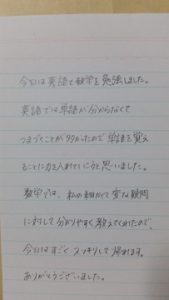 今日は英語と数学を勉強しました。
英語では単語が分からなくて
つまづくことが多かったので単語を覚え
ることに力を入れていこうと思いました。
数学では、私の細かくて変な質問
に対して分かりやすく教えてくれたので、
今日はすごくスッキリして帰れます。
ありがとうございました。